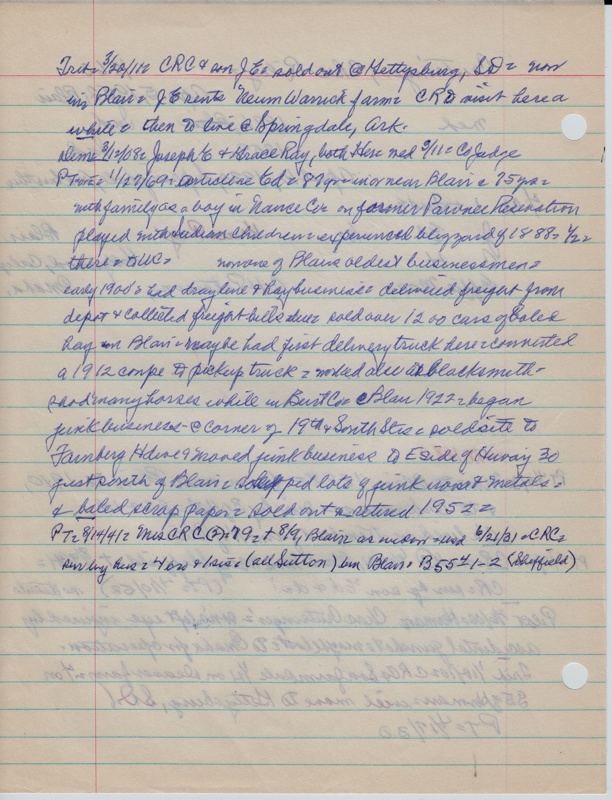 Trib = 3/20/11 = CRC & son JE = sold out @ Gettysburg, SD = now
in Blair = JE rents Neum Warrick farm = CR to visit here a
while = then to live @ Springdale, Ark.
Dem = 3/12/08 = Joseph E & Grace Ray, both Here md 3/11 = Co Judge
PT = 11/27/69 = article Ed = 87 yr = in or near Blair = 75 yrs =
with family as a boy in Nance Co = on former Pawnee Reservation
played with Indian children = experienced blizzard of 1888 =
there = to WC = now one of Blairs oldest businessmen =
early 1900s = had drayline & Hay business = delivered freight from
depot & collected freight bills due = sold over 1200 cars of baled
Hay in Blair = maybe had first delivery truck here = converted
a 1912 coupe to pickup truck = worked also @ blacksmith =
shod many horses while in Burt Co & Blair 1922 = began
junk business = @ corner of 19th & South Sts = sold site to
Farnberg Hdwe & moved junk business to E side of Hiway 30
just south of Blair = shipped lots of junk iron & metals =
& baled scrap paper = sold out & retired 1952 =
PT = 8/14/41 = Mrs CRC @ 79 = + 8/9, Blair as widow = wed 6/21/31 = CRC =
surv by hus = 4 bro & 1 sis = (all Sutton) bur Blair = B 55 1-2 (Sheffield)